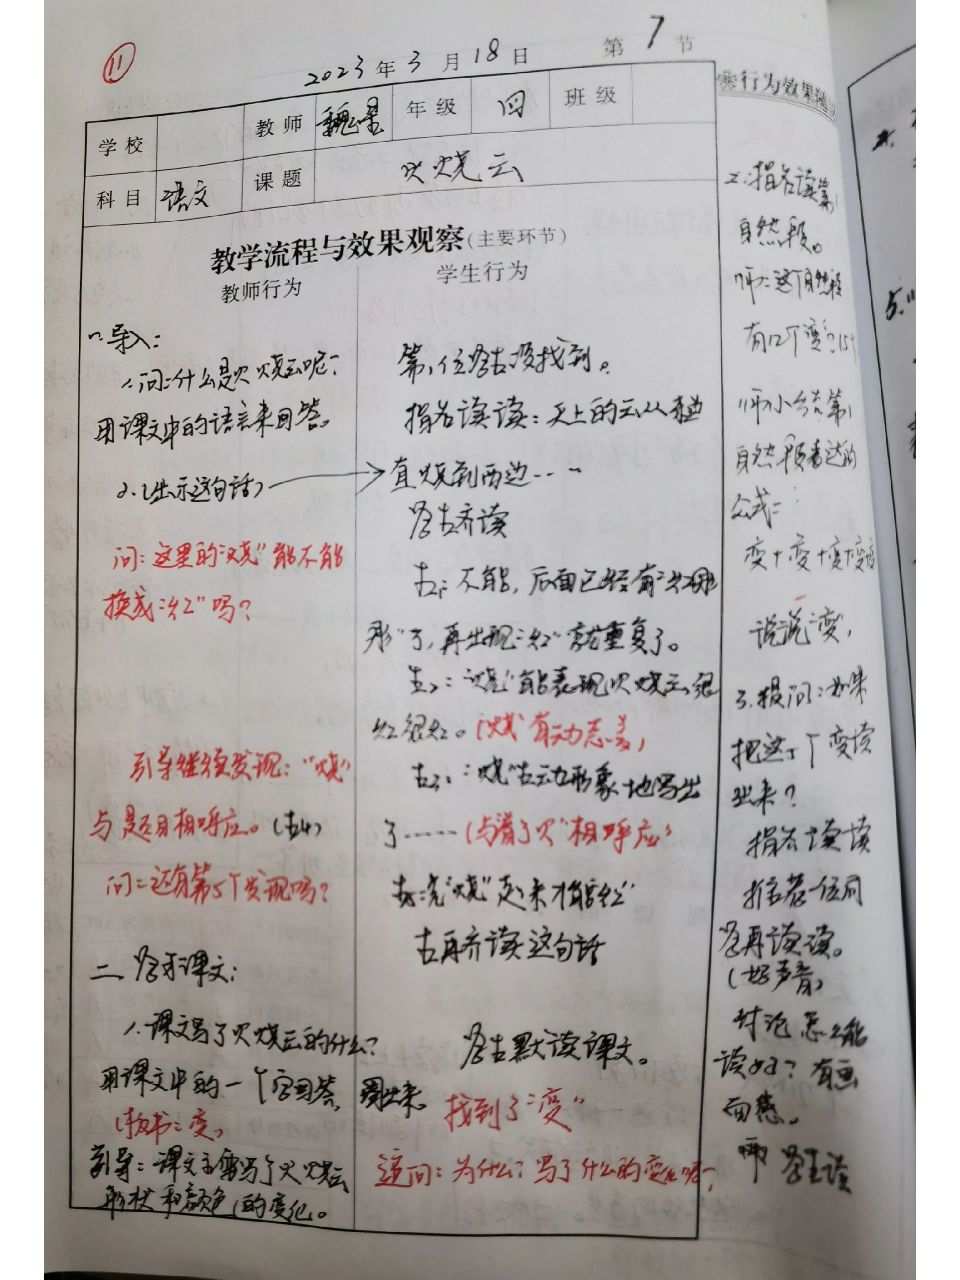 11
2023年3月18日 第7节
学校 教师 魏星 年级 四 班级
科目 语文 课题 火烧云
教学流程与效果观察(主要环节)
教师行为 学生行为
一、导入:
1、问:什么是火烧云呢?
用课文中的语言来回答。
2、(出示这句话)
问:这里的“烧”能不能
换成“红”吗?
引导继续发现:“烧”
与题目相呼应。(生4)
问:还有第5个发现吗?
二、学习课文:
1、课文写了火烧云的什么?
用课文中的一个字回答,
(板书:变)
引导:课文主要写了火烧云
形状和颜色的变化。
第1位学生没找到。
指名读读:天上的云从西边
直烧到西边……
学生齐读
生1:不能,后面已经有“红彤
彤”了,再出现“红”就重复了。
生2:“烧”能表现火烧云很
红很红。(“烧”有动态美)
生3:“烧”生动形象地写出
了……(与着了火“相呼应”)
生:先“烧”起来才能“红”
生再齐读这句话
学生默读课文。
圈出来
找到了“变”
追问:为什么?写了什么的变化呢?
※行为效果
2、指名读第1
自然段。
师:这个自然段
有12个变?15个
师小结第1
自然段表达的
公式:
变+变+变+变
说说“变”
3、提问:如果
把这个变读
出来?
指名读读
推荐一位同
学再读读。
(好声音)
讨论怎么能
读好?有画
面感。
学生读